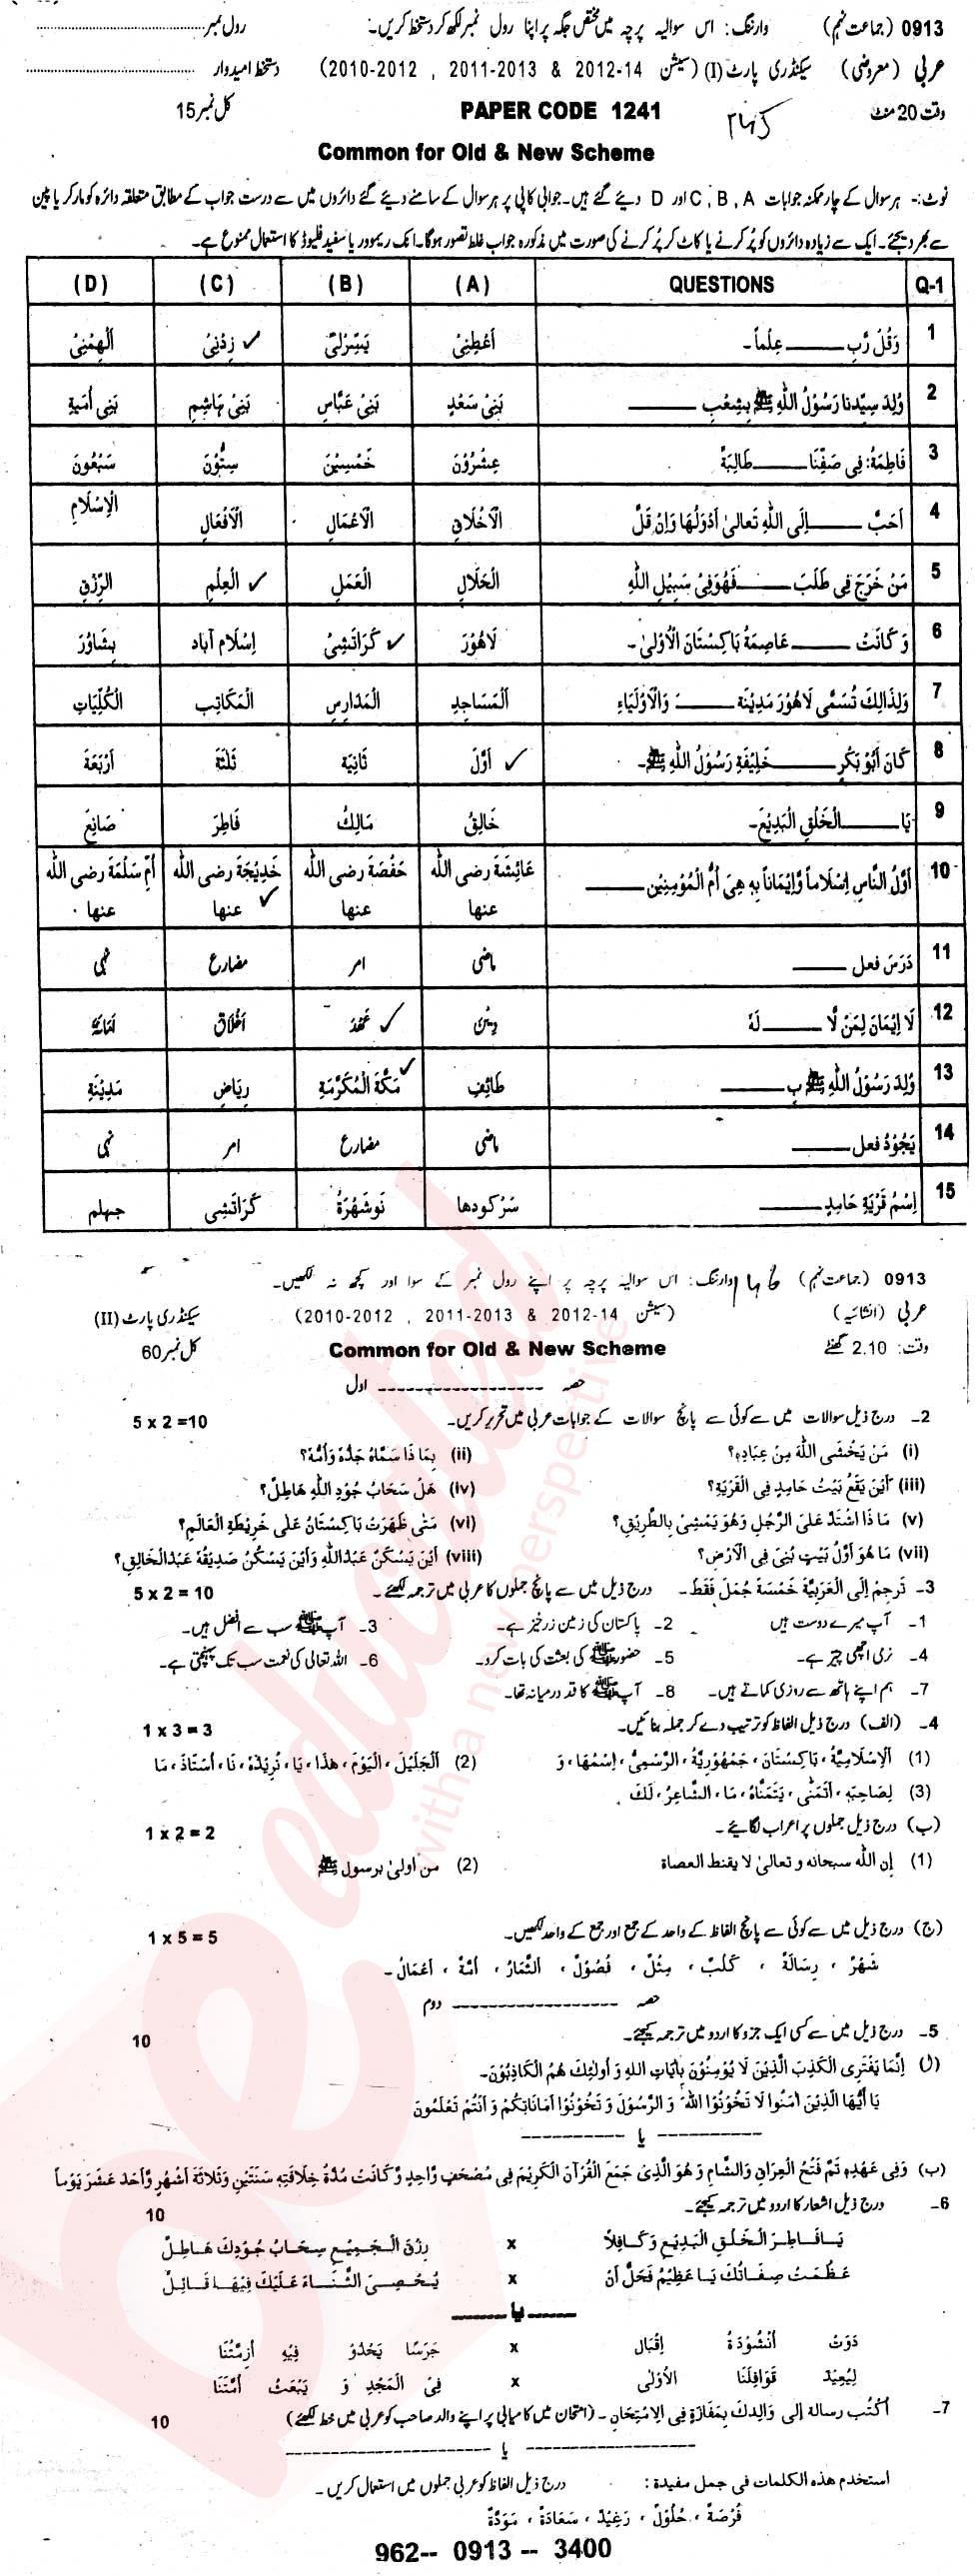 0913 (جماعت نہم) وارننگ: اس سوالیہ پرچہ میں مختص جگہ پر اپنا رول نمبر لکھ کر دستخط کریں۔ رول نمبر
عربی (معروضی) سیکنڈری پارٹ (I) (سیشن 2012-14 & 2011-2013 , 2010-2012) دستخط امیدوار
وقت 20 منٹ PAPER CODE 1241 کل نمبر 15
Common for Old & New Scheme
نوٹ:- ہر سوال کے چار ممکنہ جوابات A , B , C اور D دیئے گئے ہیں۔ جوابی کاپی پر ہر سوال کے سامنے دیئے گئے دائروں میں سے درست جواب کے مطابق متعلقہ دائرہ کو مارکر یا پین
سے بھر دیجئے۔ ایک سے زیادہ دائروں کو پُر کرنے یا کاٹ کر پُر کرنے کی صورت میں مذکورہ جواب غلط تصور ہوگا۔ انک ریموور یا سفید فلیوڈ کا استعمال ممنوع ہے۔
Q-1 QUESTIONS (A) (B) (C) (D)
1 وَقُلْ رَّبِ ____ عِلْماً۔ اَعْطِنِیْ یَسِّرْلِیْ زِدْنِیْ اَلْهِمْنِیْ
2 وُلِدَ سَیِّدنا رَسُوْلُ اللّٰهِ ﷺ بِشِعْبِ ____ بَنِیْ سَعْدٍ بَنِیْ عَبَّاسٍ بَنِیْ هَاشِمٍ بَنِیْ اُمَیةِ
3 فَاطِمَةُ: فِی صَفِّنَا ____ طَالِبَةً عِشْرُوْنَ خَمْسِیْنَ سِتُّوْنَ سَبْعُوْنَ
4 اَحَبَّ ____ اِلَی اللّٰهِ تَعَالیٰ اَدْوَلُهَا وَاِنْ قَلَّ الْاَخْلَاقِ الْاَعْمَالِ الْاَفْعَالِ الْاِسْلَامِ
5 مَنْ خَرَجَ فِی طَلَبَ ____ فَهُوَفِیْ سَبِیْلِ اللّٰهِ الْحَلَالِ الْعَمَلِ الْعِلْمِ الرِّزْقِ
6 وَ کَانَتْ ____ عَاصِمَةُ بَاکِسْتَانَ الْاُوْلیٰ۔ لَاهُوْرَ کَرَاتَشِیْ اِسْلَام آباد بِشَاوَرَ
7 وَلِذَالِكَ تُسَمّٰی لَاهُوْرَ مَدِیْنَةَ ____ وَالْاَوْلِیَاءِ اَلْمَسَاجِدِ الْمَدَارِسِ الْمَکَاتِبِ الْکُلِّیَاتِ
8 کَانَ اَبُوْ بَکْرٍ ____ خَلِیْفَةِ رَسُوْلُ اللّٰهِ ﷺ۔ اَوَّلَ ثَانِیَةَ ثَلٰثَةَ اَرْبَعَةَ
9 یَا ____ الْخَلْقِ الْبَدِیْعَ۔ خَالِقُ مَالِكُ فَاطِرَ صَانِعَ
10 اَوَّلُ النَّاسِ اِسْلَاماً وَّاِیْمَاناً بِهِ هِیَ اُمُّ الْمُؤْمِنِیْنَ ____ عَائِشَة رضی اللّٰه عنها حَفْصَة رضی اللّٰه عنها خَدِیْجَة رضی اللّٰه عنها اُمِّ سَلْمَة رضی اللّٰه عنها
11 دَرَسَ فعل ____ ماضی امر مضارع نہی
12 لَا اِیْمَانَ لِمَنْ لَّا ____ لَهُ دِیْنَ عَهْدَ اَخْلَاقَ اَمَانَةَ
13 وُلِدَ رَسُوْلُ اللّٰهِ ﷺ بِ ____ طَائِفِ مَکَّةَ الْمُکَرَّمَةِ رِیَاضِ مَدِیْنَةِ
14 یَجُوْدُ فعل ____ ماضی مضارع امر نہی
15 اِسْمُ قَرْیَةِ حَامِدٍ ____ سَرْکودها نَوشَهْرَةُ کَرَاتَشِی جهلم
0913 (جماعت نہم) وارننگ: اس سوالیہ پرچہ پر اپنے رول نمبر کے سوا اور کچھ نہ لکھیں۔
عربی (انشائیہ) (سیشن 2012-14 & 2011-2013 , 2010-2012) سیکنڈری پارٹ (II)
وقت: 2.10 گھنٹے Common for Old & New Scheme کل نمبر 60
حصہ ---------- اول
2۔ درج ذیل سوالات میں سے کوئی سے پانچ سوالات کے جوابات عربی میں تحریر کریں۔ 5 x 2 =10
(i) مَنْ یَخْشَی اللّٰهَ مِنْ عِبَادِهٖ؟ (ii) بِمَا ذَا سَمَّاهُ جَدُّهُ وَاُمُّهُ؟
(iii) اَیْنَ یَقَعُ بَیْتُ حَامِدٍ فِی الْقَرْیَةِ؟ (iv) هَلْ سَحَابُ جُوْدِ اللّٰهِ هَاطِلٌ؟
(v) مَا ذَا اشْتَدَّ عَلَی الرَّجُلِ وَهُوَ یَمْشِیْ بِالطَّرِیْقِ؟ (vi) مَتٰی ظَهَرَتْ بَاکِسْتَانُ عَلٰی خَرِیْطَةِ الْعَالَمِ؟
(vii) مَا هُوَ اَوَّلُ بَیْتٍ بُنِیَ فِی الْاَرْضِ؟ (viii) اَیْنَ یَسْکُنُ عَبْدُاللّٰهِ وَاَیْنَ یَسْکُنُ صَدِیْقُهُ عَبْدُالْخَالِقِ؟
3۔ تَرجِمْ اِلَی الْعَرَبِیَّةِ خَمْسَةَ جُمَلٍ فَقَطْ۔ درج ذیل میں سے پانچ جملوں کا عربی میں ترجمہ لکھئے۔ 5 x 2 = 10
1۔ آپ میرے دوست ہیں 2۔ پاکستان کی زمین زرخیز ہے۔ 3۔ آپ ﷺ سب سے افضل ہیں۔
4۔ نرمی اچھی چیز ہے۔ 5۔ حضور ﷺ کی بعثت کی بات کرو۔ 6۔ اللہ تعالی کی نعمت سب تک پہنچتی ہے۔
7۔ ہم اپنے ہاتھ سے روزی کماتے ہیں۔ 8۔ آپ ﷺ کا قد درمیانہ تھا۔
4۔ (الف) درج ذیل الفاظ کو ترتیب دے کر جملہ بنائیں۔ 1 x 3 = 3
(1) اَلْاِسْلَامِیَّةُ ، بَاکِسْتَانَ ، جَمْهُوْرِیَّةُ ، الرَّسْمِیُّ ، اِسْمُهَا ، وَ (2) اَلْجَلِیْلَ ، الْیَوْمَ ، هٰذَا ، یَا ، نُرِیْدُهُ ، نَا ، اُسْتَاذَ ، مَا
(3) لِصَاحِبِهٖ ، اَتَمَنّٰی ، یَتَمَنَّاهُ ، مَا ، الشَّاعِرُ ، لَكَ
(ب) درج ذیل جملوں پر اعراب لگائیے۔ 1 x 2 = 2
(1) إن اللّٰه سبحانه و تعالیٰ لا یقنط العصاة (2) من اولیٰ برسول ﷺ
(ج) درج ذیل میں سے کوئی سے پانچ الفاظ کے واحد کے جمع اور جمع کے واحد لکھیں۔ 1 x 5 = 5
شَهْرٌ ، رِسَالَةٌ ، کَلْبٌ ، مِثْلٌ ، فُصُوْلٌ ، الثِّمَارُ ، اُمَّةٌ ، اَعْمَالٌ۔
حصہ ---------- دوم
5۔ درج ذیل میں سے کسی ایک جزو کا اردو میں ترجمہ کیجئے۔ 10
(ل) اِنَّمَا یَفْتَرِی الْکَذِبَ الَّذِیْنَ لَا یُؤْمِنُوْنَ بِاٰیَاتِ اللهِ وَ اُولٰئِكَ هُمُ الْکَاذِبُوْنَ۔
یَا اَیُّهَا الَّذِیْنَ اٰمَنُوْا لَا تَخُوْنُوْا اللّٰهَ وَ الرَّسُوْلَ وَ تَخُوْنُوْا اَمَانَاتِکُمْ وَ اَنْتُمْ تَعْلَمُوْنَ
---------- یا ----------
(ب) وَفِی عَهْدِهٖ تَمَّ فَتْحُ الْعِرَاقِ وَالشَّامِ وَ هُوَ الَّذِیْ جَمَعَ الْقُرْآنَ الْکَرِیْمَ فِی مُصْحَفٍ وَّاحِدٍ وَّ کَانَتْ مُدَّةُ خِلَافَتِهٖ سَنَتَیْنِ وَثَلَاثَةَ اَشْهُرٍ وَّاَحَدَ عَشَرَ یَوْماً
6۔ درج ذیل اشعار کا اردو میں ترجمہ کیجئے۔ 10
یَـافَـاطِـرَ الْـخَلْقِ الْبَـدِیْـعِ وَ کَـافِـلاً x رِزْقَ الْـجَـمِیْـعِ سِحَـابُ جُوْدِكَ هَـاطِـلُ
عَـظُـمَـتْ صِفَـاتُكَ یَـا عَظِیْمُ فَجَلَّ اَنْ x یُـحْـصِـیَ الثَّـنَـاءَ عَلَیْكَ فِیْهَـا قَـائِـلُ
------یا------
دَوَتْ اُنْشُوْدَةُ اِقْبَال x جَرَسًا یَحْدُوْ فِیْهِ اَزِمَّتُنَا
لِیُعِیْدَ قَوَافِلَنَا الْاُوْلٰی x فِیْ الْمَجْدِ وَ یَبْعَثُ اُمَّتَنَا
7۔ اُکْتُبْ رسالة إلی وَالِدِكَ بِمَفَازَةِ فِی الْاِمْتِحَانِ ۔ (امتحان میں کامیابی پر اپنے والد صاحب کو عربی میں خط لکھئے) 10
---------- یا ----------
استخدم هذه الکلمات فی جمل مفیدة : درج ذیل الفاظ کو عربی جملوں میں استعمال کریں۔
فُرْصَةٌ ، حُلُوْلٌ ، رَغِیْدٌ ، سَعَادَةٌ ، مَوَدَّةٌ
962-- 0913 -- 3400
beeducated
with a new perspective